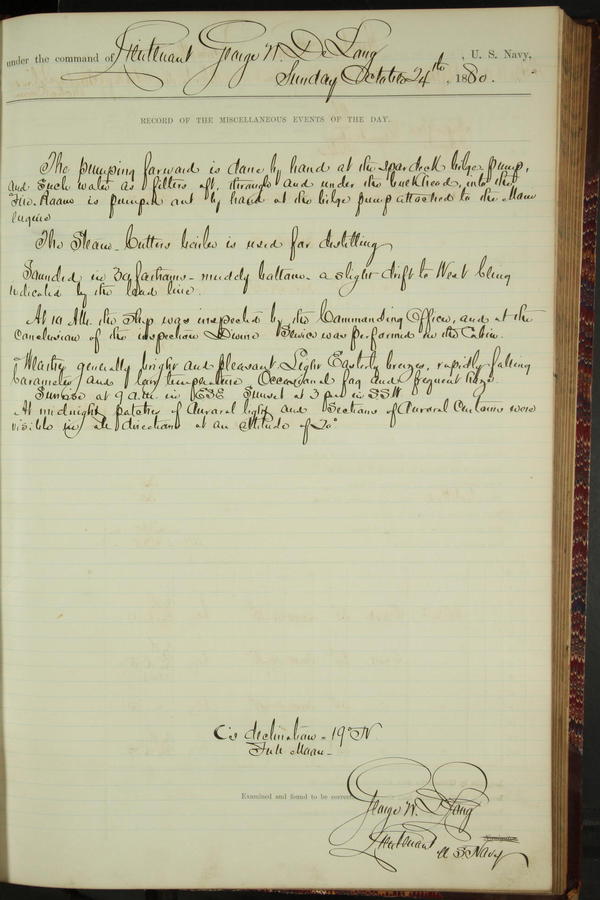 under the command of Lieutenant George W. De Long , U. S. Navy,
Sunday October 24th , 1880.
RECORD OF THE MISCELLANEOUS EVENTS OF THE DAY.
The pumping forward is done by hand at the spar deck bilge pump,
and such water as filters aft, through and under the bulkhead, into the
Fire Room is pumped out by hand at the bilge pump attached to the Main
Engine
The Steam-Cutters boiler is used for distilling
Sounded in 30 fathoms - muddy bottom - a slight drift to West being
indicated by the lead line.
At 10 AM. the Ship was inspected by the Commanding Officer, and at the
conclusion of the inspection Divine Service was performed in the Cabin.
Weather generally bright and pleasant. Light Easterly breezes, rapidly falling
barometer and low temperature Occasional fog and frequent haze.
Sunrise at 9 a.m. in ESE Sunset at 3 p.m. in SSW
At midnight patches of Auroral light and Sections of Auroral Curtains were
visible in all directions at an altitude of 20°
C's declination - 19° N
Full Moon -
Examined and found to be correct.
George W. De Long
Lieutenant U S Navy